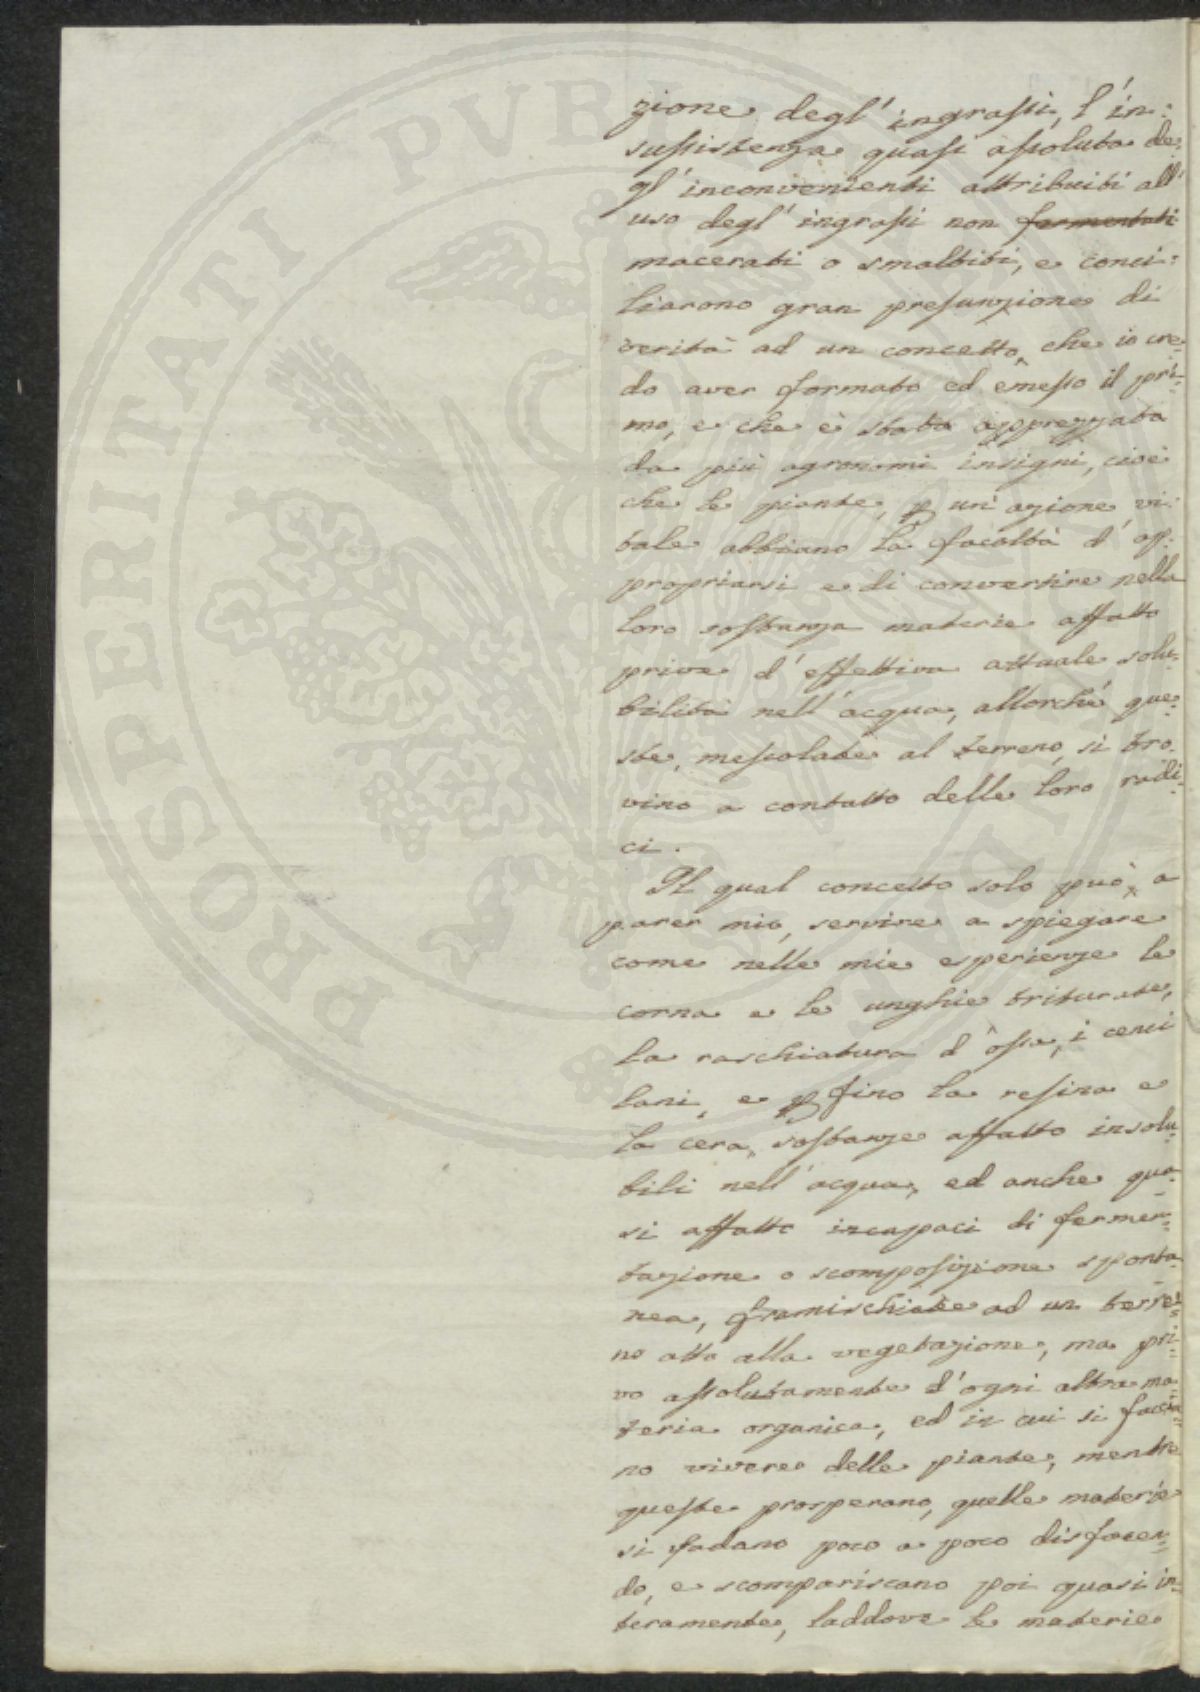 zione degl'ingrassi, l'in:
sussistenza quasi assoluta de:
gl'inconvenienti attribuiti all'
uso degl'ingrassi non fermentati
macerati o smaltiti, e conci:
liarono gran presunzione di
verità ad un concetto, che io cre:
do aver formato ed emesso il pri:
mo, e che è stato apprezzato
da più agronomi insigni, cioè
che le piante, p un'azione vi:
tale abbiano la facoltà d'ap:
propriarsi e di convertire nella
loro sostanza materie affatto
prive d'effettiva attuale solu:
bilità nell'acqua, allorché que:
ste, mescolate al terreno, si tro:
vino a contatto delle loro radi:
ci.
Il qual concetto solo può, a
parer mio, servire a spiegare
come nelle mie esperienze le
corna e le unghie triturate,
la raschiatura d'ossa, i cenci
lani, e p fino la resina e
la cera, sostanze affatto insolu:
bili nell'acqua, ed anche qua:
si affatto incapaci di fermen:
tazione o scomposizione sponta:
nea, framischiate ad un terre:
no atto alla vegetazione, ma pri:
vo assolutamente d'ogni altra ma:
teria organica, ed in cui si faccia:
no vivere delle piante, mentre
queste prosperano, quelle materie
si vadano poco a poco disfacen:
do, e scompariscano poi quasi in:
teramente, laddove le materie
PROSPERITATI PVBL